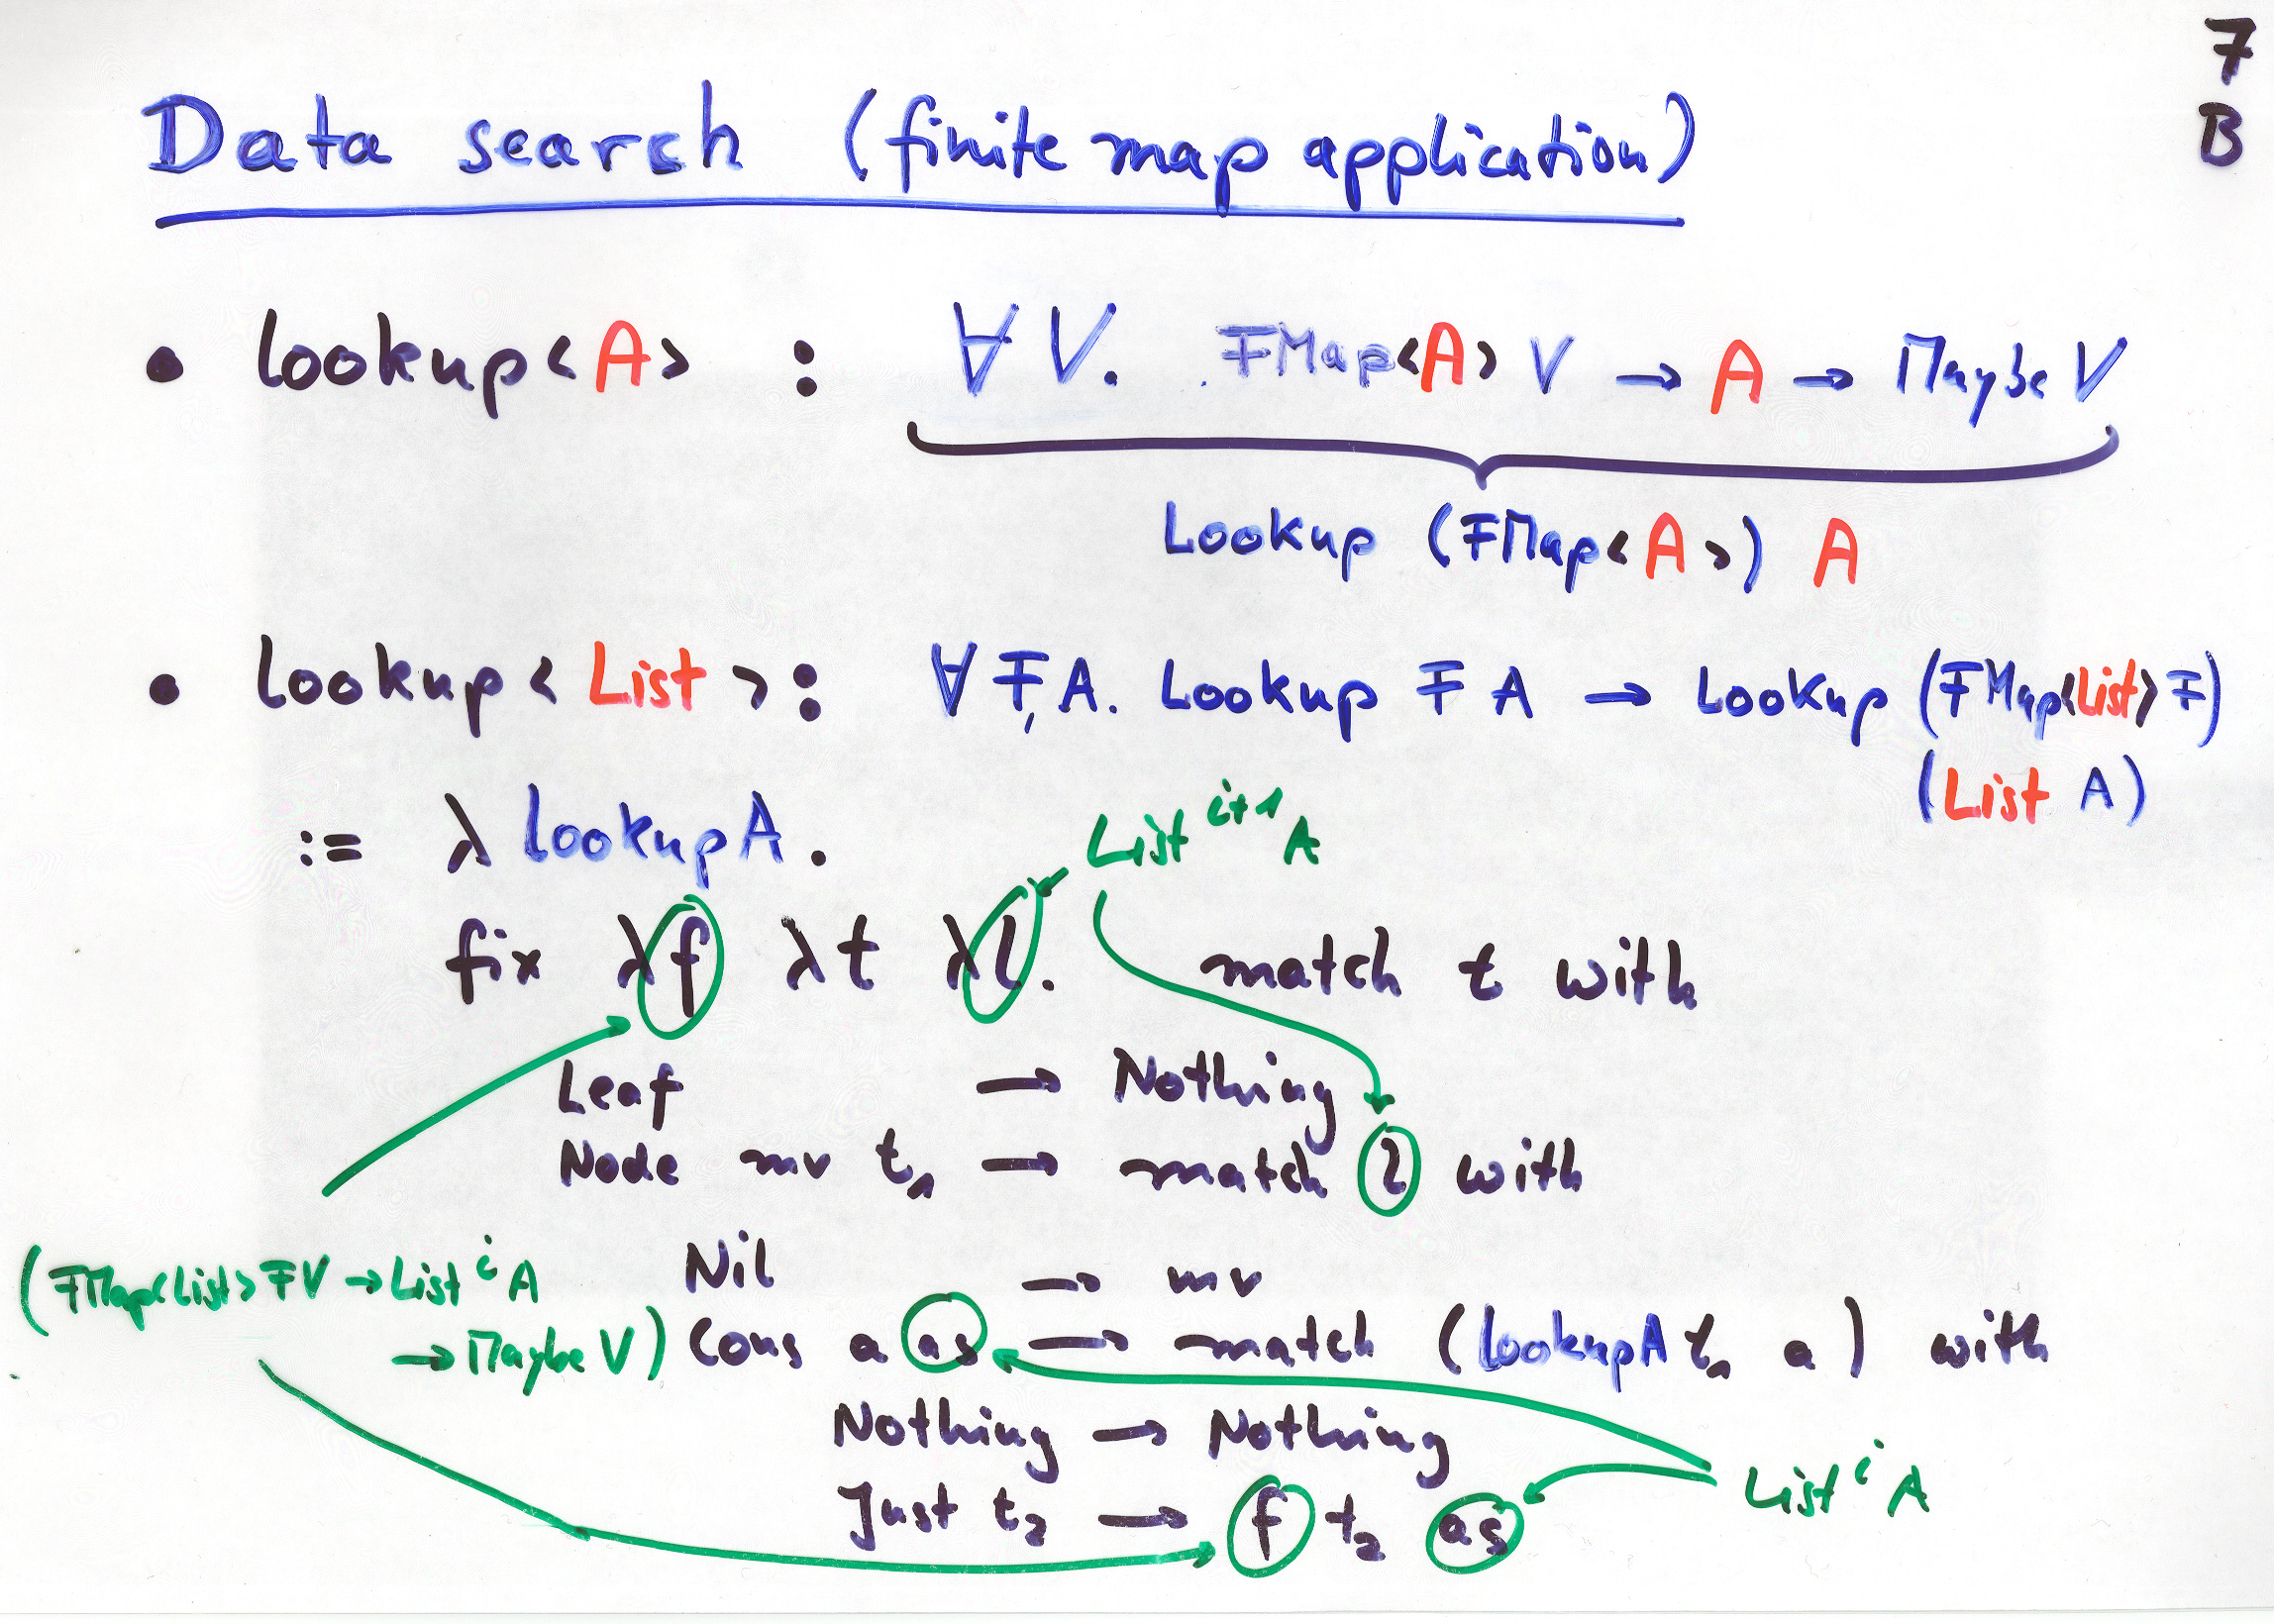 7
B
Data search (finite map application)
• lookup<A> : ∀ V. FMap<A> V → A → Maybe V
Lookup (FMap<A>) A
• lookup<List> : ∀ F, A. Lookup F A → Lookup (FMap<List> F)
(List A)
:= λ lookupA.
List^{i+1} A
fix λf λt λl. match t with
Leaf → Nothing
Node mv t₁ → match l with
(FMap<List> F V → List^i A
→ Maybe V)
Nil → mv
Cons a as → match (lookupA t₁ a) with
Nothing → Nothing
Just t₂ → f t₂ as
List^i A